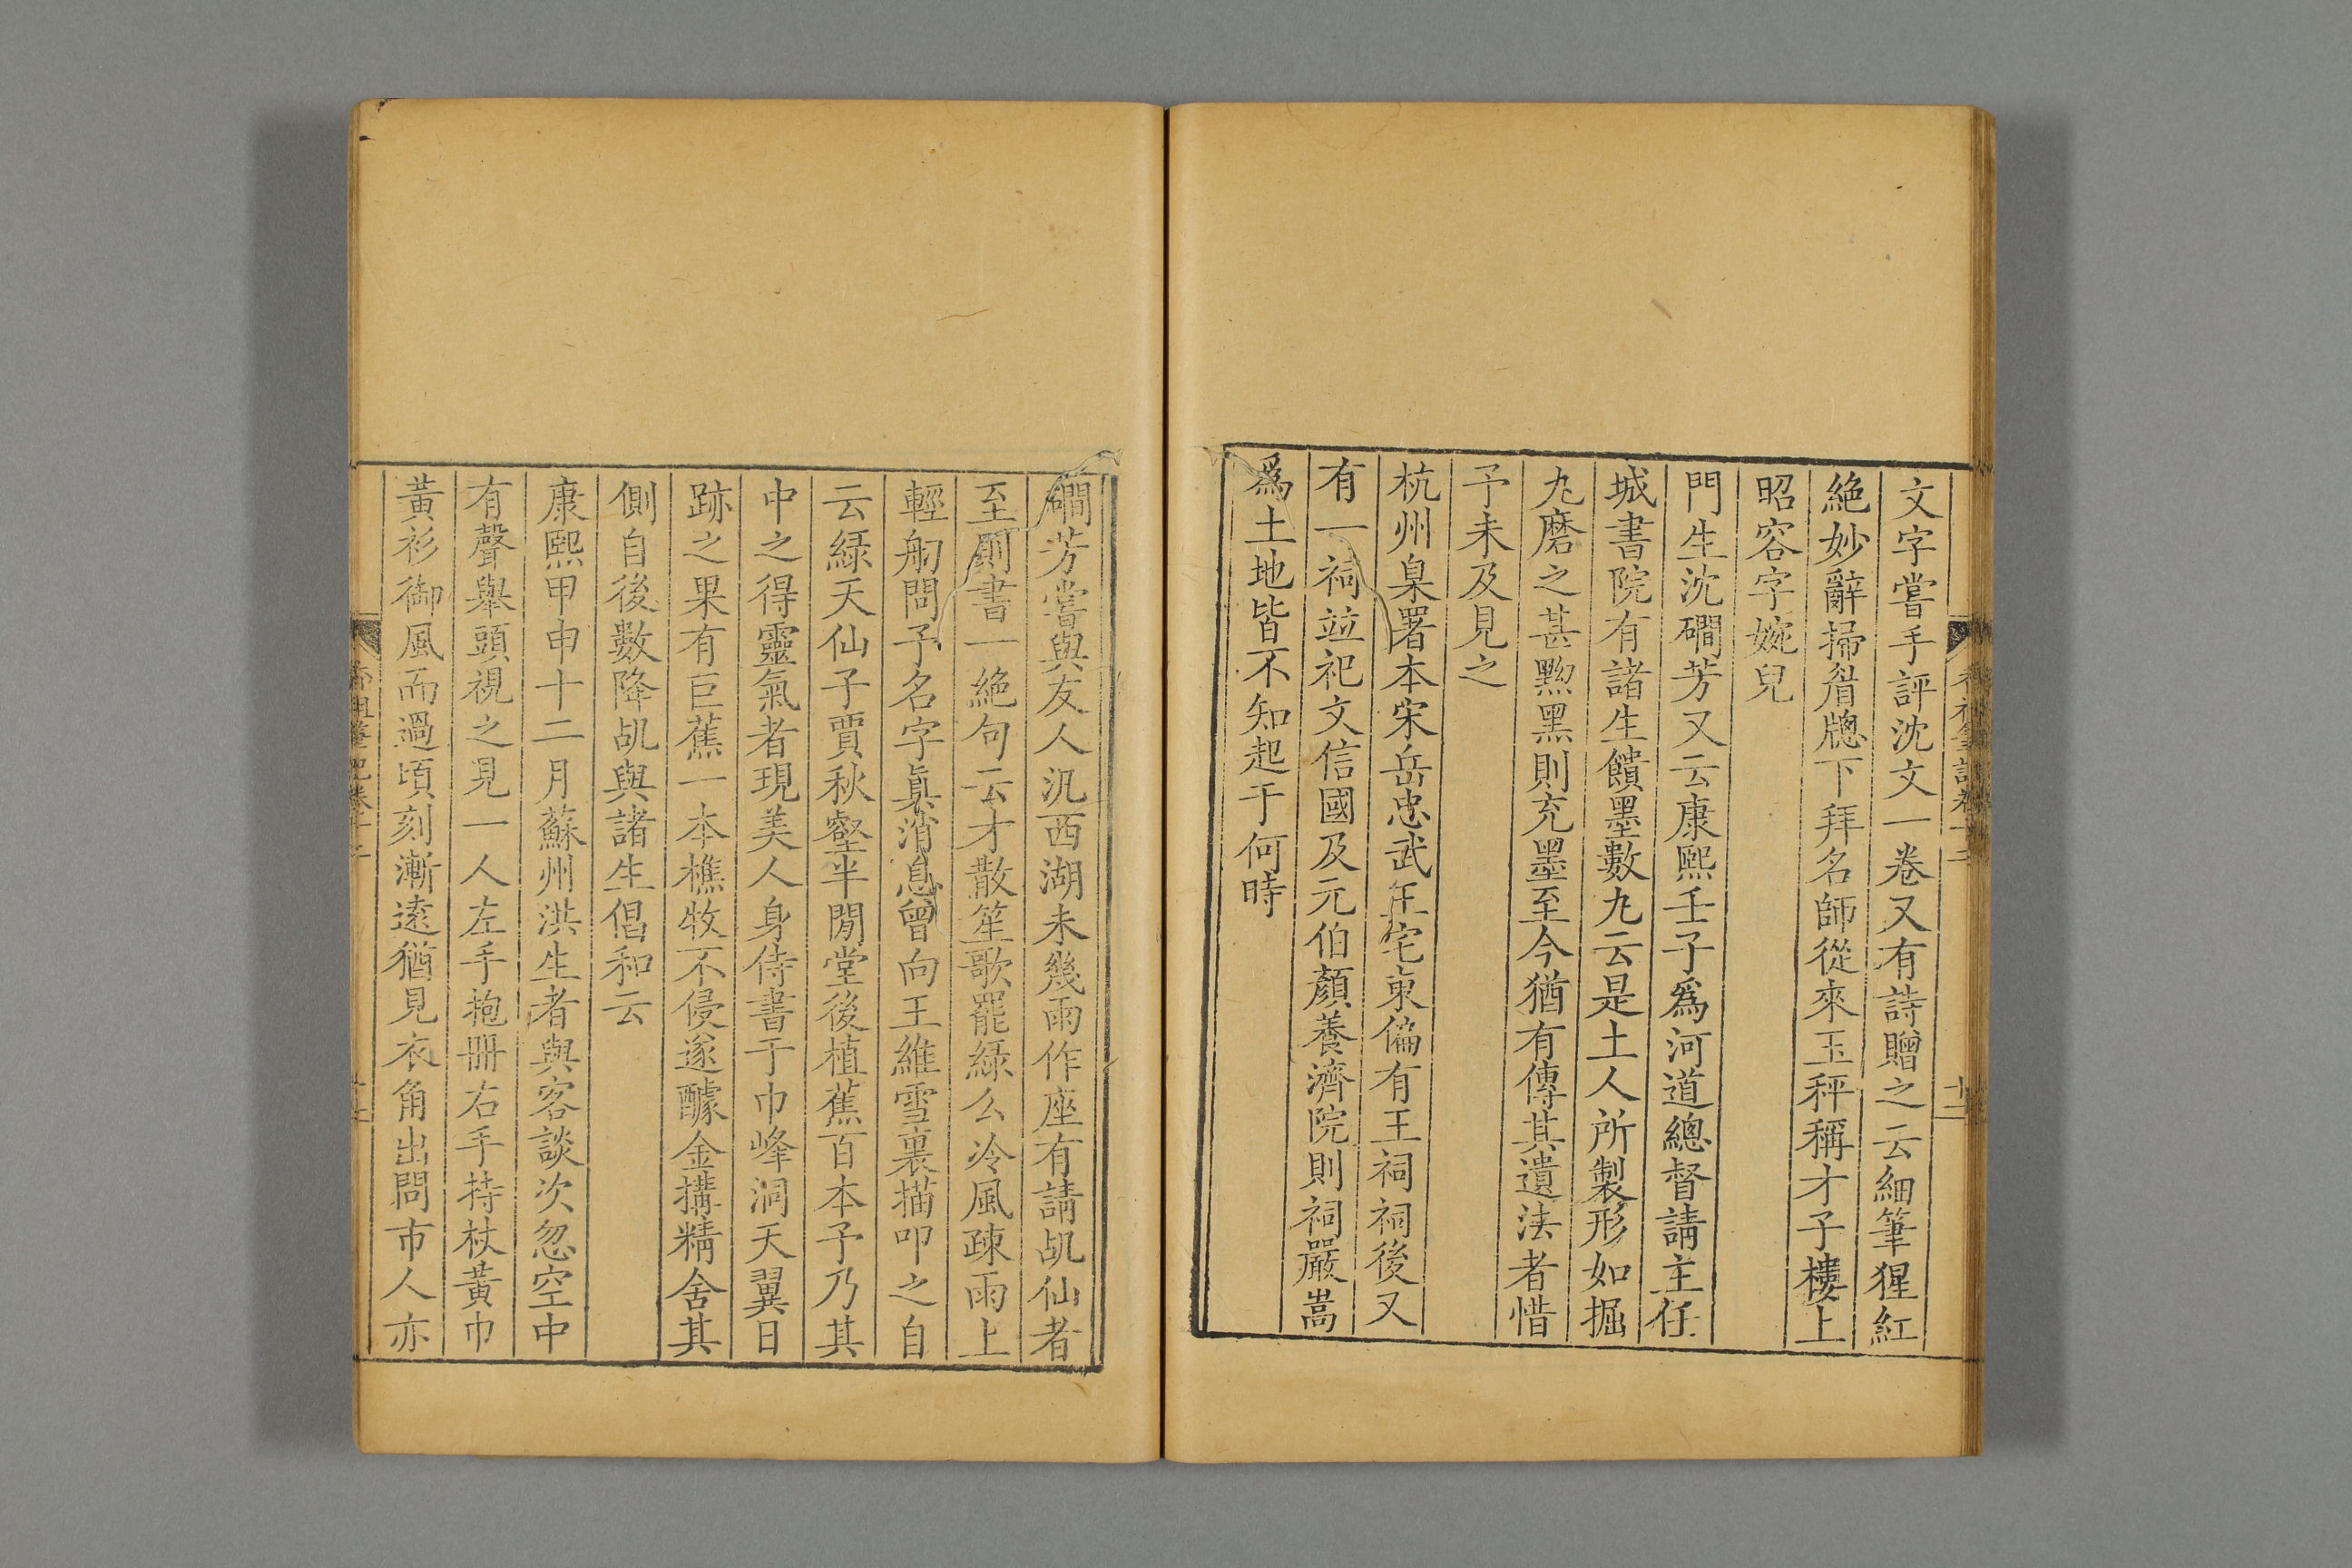 文字嘗手評沈文一卷又有詩贈之云細筆猩紅
絶妙辭掃眉牕下拜名師從來玉秤稱才子樓上
昭容字婉兒
門生沈磵芳又云康熙壬子爲河道總督請主任
城書院有諸生饋墨數九云是土人所製形如掘
九磨之甚黝黑則充墨至今猶有傳其遺法者惜
予未及見之
杭州臬署本宋岳忠武王宅東偏有王祠祠後又
有一祠並祀文信國及元伯顏養濟院則祠嚴嵩
爲土地皆不知起于何時
磵芳嘗與友人汎西湖未幾雨作座有請乩仙者
至則書一絶句云才散笙歌罷綠么冷風疎雨上
輕舠問予名字眞消息曾向王維雪裏描叩之自
云綠天仙子賈秋壑半閒堂後植蕉百本予乃其
中之得靈氣者現美人身侍書于巾峰洞天翼日
跡之果有巨蕉一本樵牧不侵遂醵金搆精舍其
側自後數降乩與諸生倡和云
康熙甲申十二月蘇州洪生者與客談次忽空中
有聲舉頭視之見一人左手抱冊右手持杖黃巾
黃衫御風而過頃刻漸遠猶見衣角出問市人亦